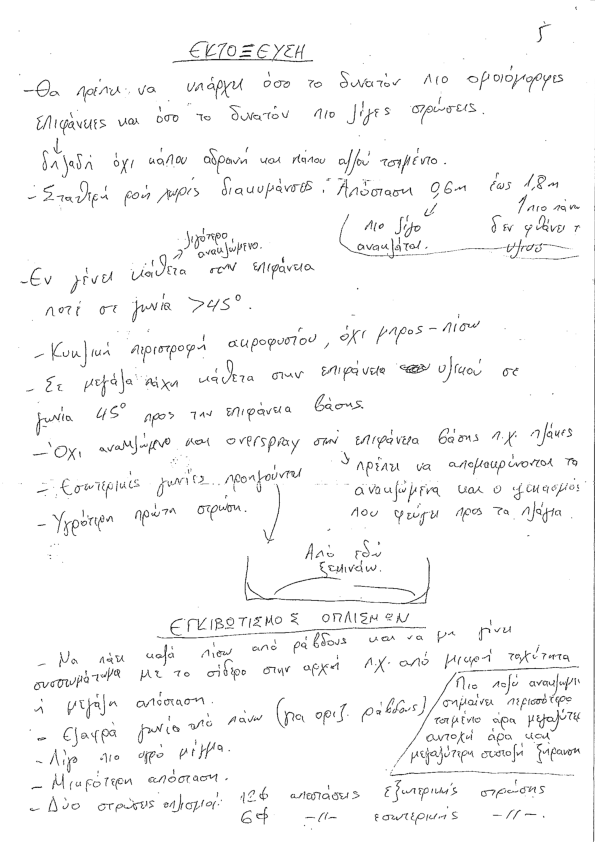 5
ΕΚΤΟΞΕΥΣΗ
- Θα πρέπει να υπάρχει όσο το δυνατόν πιο ομοιόμορφες
επιφάνειες και όσο το δυνατόν πιο λίγες στρώσεις.
δηλαδή όχι κάπου αδρανή και κάπου αλλού τσιμέντο.
- Σταθερή ροή χωρίς διακυμάνσεις. Απόσταση 0,6m έως 1,8m
πιο λίγο
ανακλάται.
πιο πάνω
δεν φθάνει τ
υλικό
λιγότερο
ανακλώμενο.
- Εν γένει κάθετα στην επιφάνεια
ποτέ σε γωνία >45°.
- Κυκλική περιστροφή ακροφυσίου, όχι μπρος-πίσω
- Σε μεγάλα πάχη κάθετα στην επιφάνεια υλικού σε
γωνία 45° προς την επιφάνεια βάσης.
- Όχι ανακλώμενο και overspray στην επιφάνεια βάσης π.χ. πλάκες
πρέπει να απομακρύνονται τα
ανακλώμενα και ο ψεκασμός
που φεύγει προς τα πλάγια.
- Εσωτερικές γωνίες προηγούνται
- Υγρότερη πρώτη στρώση.
Από εδώ
ξεκινάω.
ΕΓΚΙΒΩΤΙΣΜΟΣ ΟΠΛΙΣΜΩΝ
- Να πάει καλά πίσω από ράβδους και να μη γίνει
συσσωμάτωμα με το σίδερο στην αρχή π.χ. από μικρή ταχύτητα
ή μεγάλη απόσταση.
- Ελαφρά γωνία από πάνω (για οριζ. ράβδους)
- Λίγο πιο υγρό μίγμα.
- Μικρότερη απόσταση.
- Δύο στρώσεις οπλισμοί: 12Φ αποστάσεις εξωτερικής στρώσης
6Φ -//- εσωτερικής -//-.
Πιο πολύ ανακλώμε
σημαίνει περισσότερο
τσιμέντο άρα μεγαλύτε
αντοχή άρα και
μεγαλύτερη συστολή ξήρανση